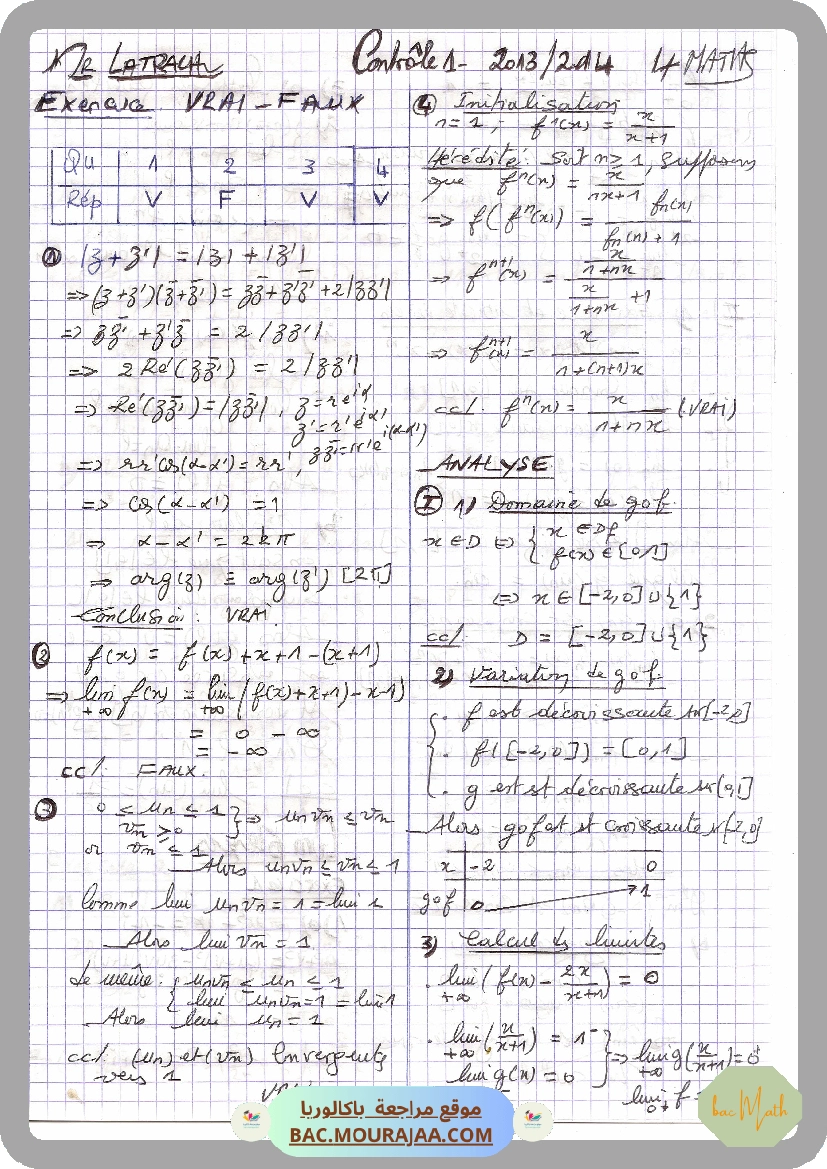 Mr LATRACH Contrôle 1 - 2013/2014 4 MATHS
Exercice VRAI - FAUX
Qu 1 2 3 4
Rép V F V V
① |z + z'| = |z| + |z'|
=> (z + z')(z̄ + z̄') = zz̄ + z'z̄' + 2|zz'|
=> zz̄' + z'z̄ = 2|zz'|
=> 2 Ré(zz̄') = 2|zz'|
=> Ré(zz̄') = |zz'|, z = re^{iα}
z' = r'e^{iα'}
zz̄' = rr'e^{i(α-α')}
=> rr'cos(α-α') = rr',
=> cos(α-α') = 1
=> α - α' = 2kπ
=> arg(z) ≡ arg(z') [2π]
Conclusion : VRAI.
② f(x) = f(x) + x + 1 - (x+1)
=> lim f(x) = lim (f(x)+x+1) - x-1)
+∞ +∞
= 0 - ∞
= - ∞
ccl. FAUX.
③ 0 ≤ un ≤ 1 } => unvn ≤ vn
vn ≥ 0
or vn ≤ 1
Alors unvn ≤ vn ≤ 1
Comme lim unvn = 1 = lim 1
Alors lim vn = 1
de même. { unvn ≤ un ≤ 1
lim unvn = 1 = lim 1
Alors lim un = 1
ccl (un) et (vn) Convergente
vers 1
④ Initialisation
n = 1 ; f¹(x) = x/(x+1)
Hérédité : Soit n ≥ 1, Supposons
que fⁿ(x) = x/(nx+1)
=> f(fⁿ(x)) = fn(x)/(fn(x)+1)
=> fⁿ⁺¹(x) = (x/(1+nx))/(x/(1+nx) + 1)
=> fⁿ⁺¹(x) = x/(1+(n+1)x)
ccl. fⁿ(x) = x/(1+nx) (VRAI)
ANALYSE
Ⅰ 1) Domaine de gof.
x ∈ D ⇔ { x ∈ Df
f(x) ∈ [0,1]
⇔ x ∈ [-2,0] ∪ {1}
ccl. D = [-2,0] ∪ {1}
2) Variation de gof.
. f est décroissante sur [-2,0]
. f([-2,0]) = [0,1]
. g est st décroissante sur [0,1]
Alors gof est st croissante sr [-2,0]
x -2 0
gof 0 1
3) Calcul des limites
. lim (f(x) - 2x/(x+1)) = 0
+∞
. lim (x/(x+1)) = 1⁻
+∞
lim g(x) = 0
=> lim g(x/(x+1)) = 0⁺
+∞
موقع مراجعة باكالوريا
BAC.MOURAJAA.COM
bac Math